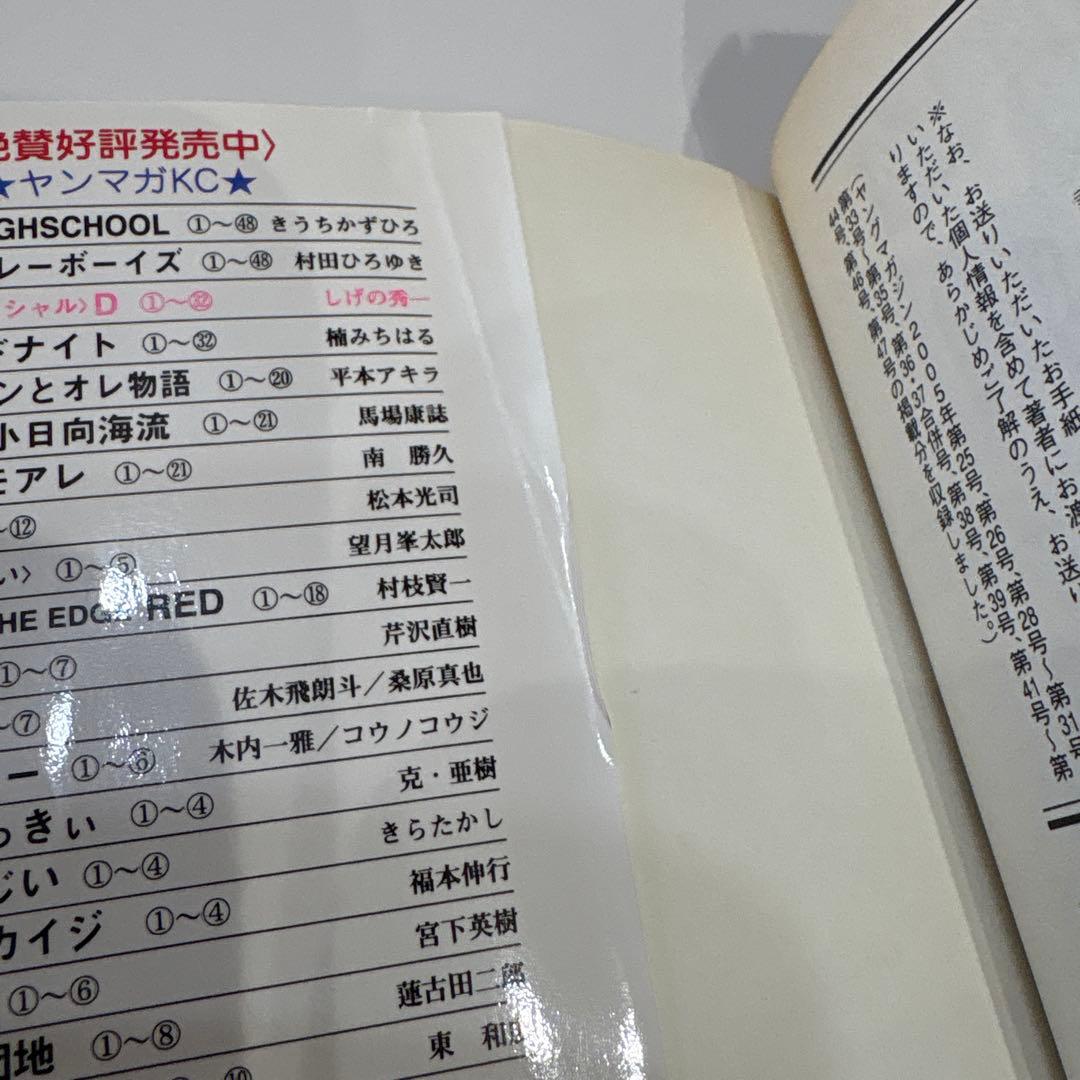 絶賛好評発売中〉
★ヤンマガKC★
GHSCHOOL ①～㊽ きうちかずひろ
レーボーイズ ①～㊽ 村田ひろゆき
シャル〉D ①～㉜ しげの秀一
ドナイト ①～㉜ 楠みちはる
ンとオレ物語 ①～⑳ 平本アキラ
小日向海流 ①～㉑ 馬場康誌
モアレ ①～㉑ 南 勝久
～⑫ 松本光司
い〉 ①～⑤ 望月峯太郎
HE EDGE RED ①～⑱ 村枝賢一
①～⑦ 芹沢直樹
～⑦ 佐木飛朗斗／桑原真也
ー ①～⑥ 木内一雅／コウノコウジ
っきぃ ①～④ 克・亜樹
じい ①～④ きらたかし
カイジ ①～④ 福本伸行
①～⑥ 宮下英樹
団地 ①～⑧ 蓮古田二郎
⑩ 東 和
※なお、お送りいただいたお手紙
いただいた個人情報を含めて著者にお渡
りますので、あらかじめご了解のうえ、お送り
（ヤングマガジン2005年第25号、第26号、第28号～第31号
第33号～第35号、第36・37合併号、第38号、第39号、第41号～第
44号、第46号、第47号の掲載分を収録しました。）